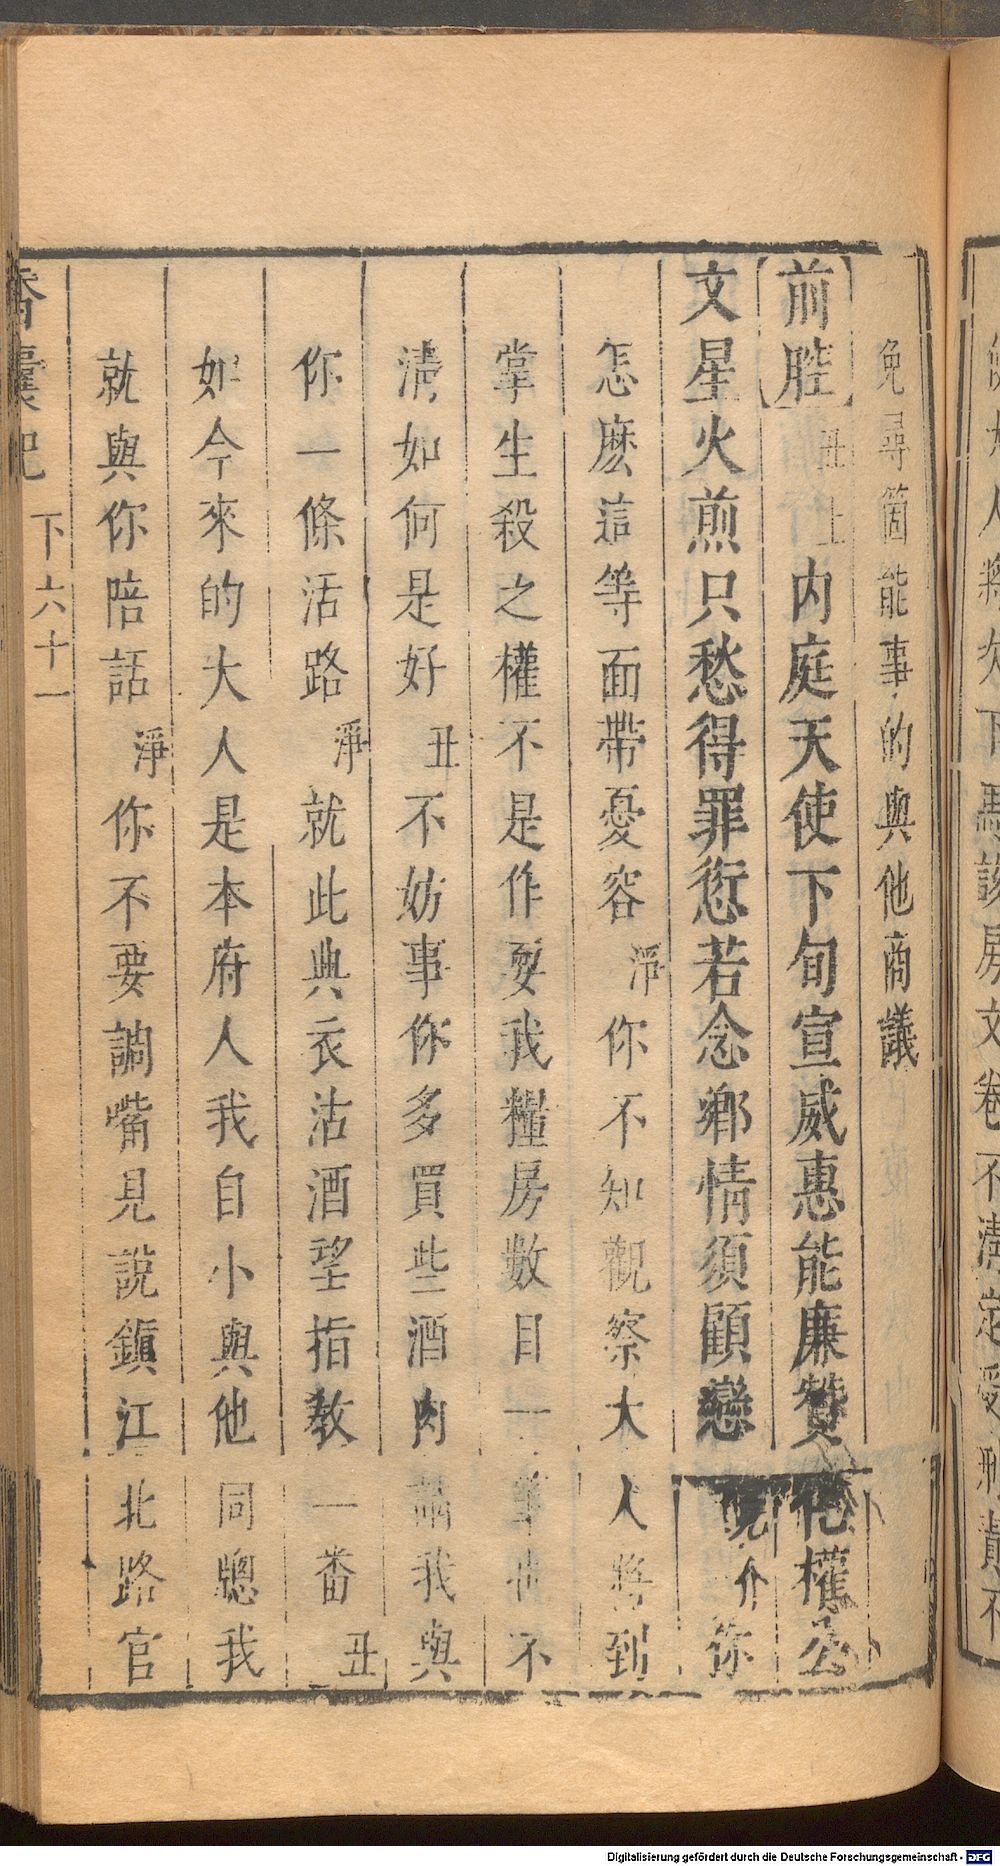 人將次下馬該房文卷不清定受刑責不
免尋箇能事的與他商議
【前腔】丑上內庭天使下旬宣威惠能廉贊化權公
文星火煎只愁得罪愆若念鄉情須顧戀見介你
怎麽這等面帶憂容淨你不知觀察大人將到
掌生殺之權不是作耍我糧房數目一筆也不
清如何是好丑不妨事你多買些酒肉請我與
你一條活路淨就此典衣沽酒望指教一番丑
如今來的大人是本府人我自小與他同牕我
就與你陪話淨你不要調嘴見說鎮江北路官
香囊記 下六十一
Digitalisierung gefördert durch die Deutsche Forschungsgemeinschaft - DFG